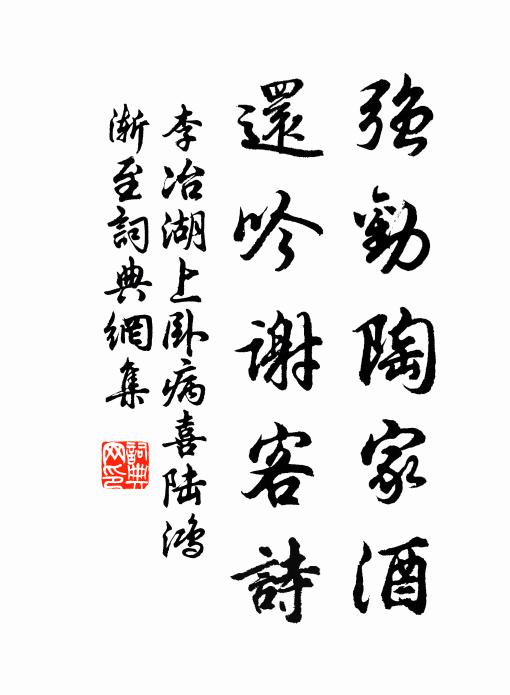 強勸陶家酒
還吟謝客詩
李冶湖上臥病喜陸鴻
漸至詞典網集
詞典網印